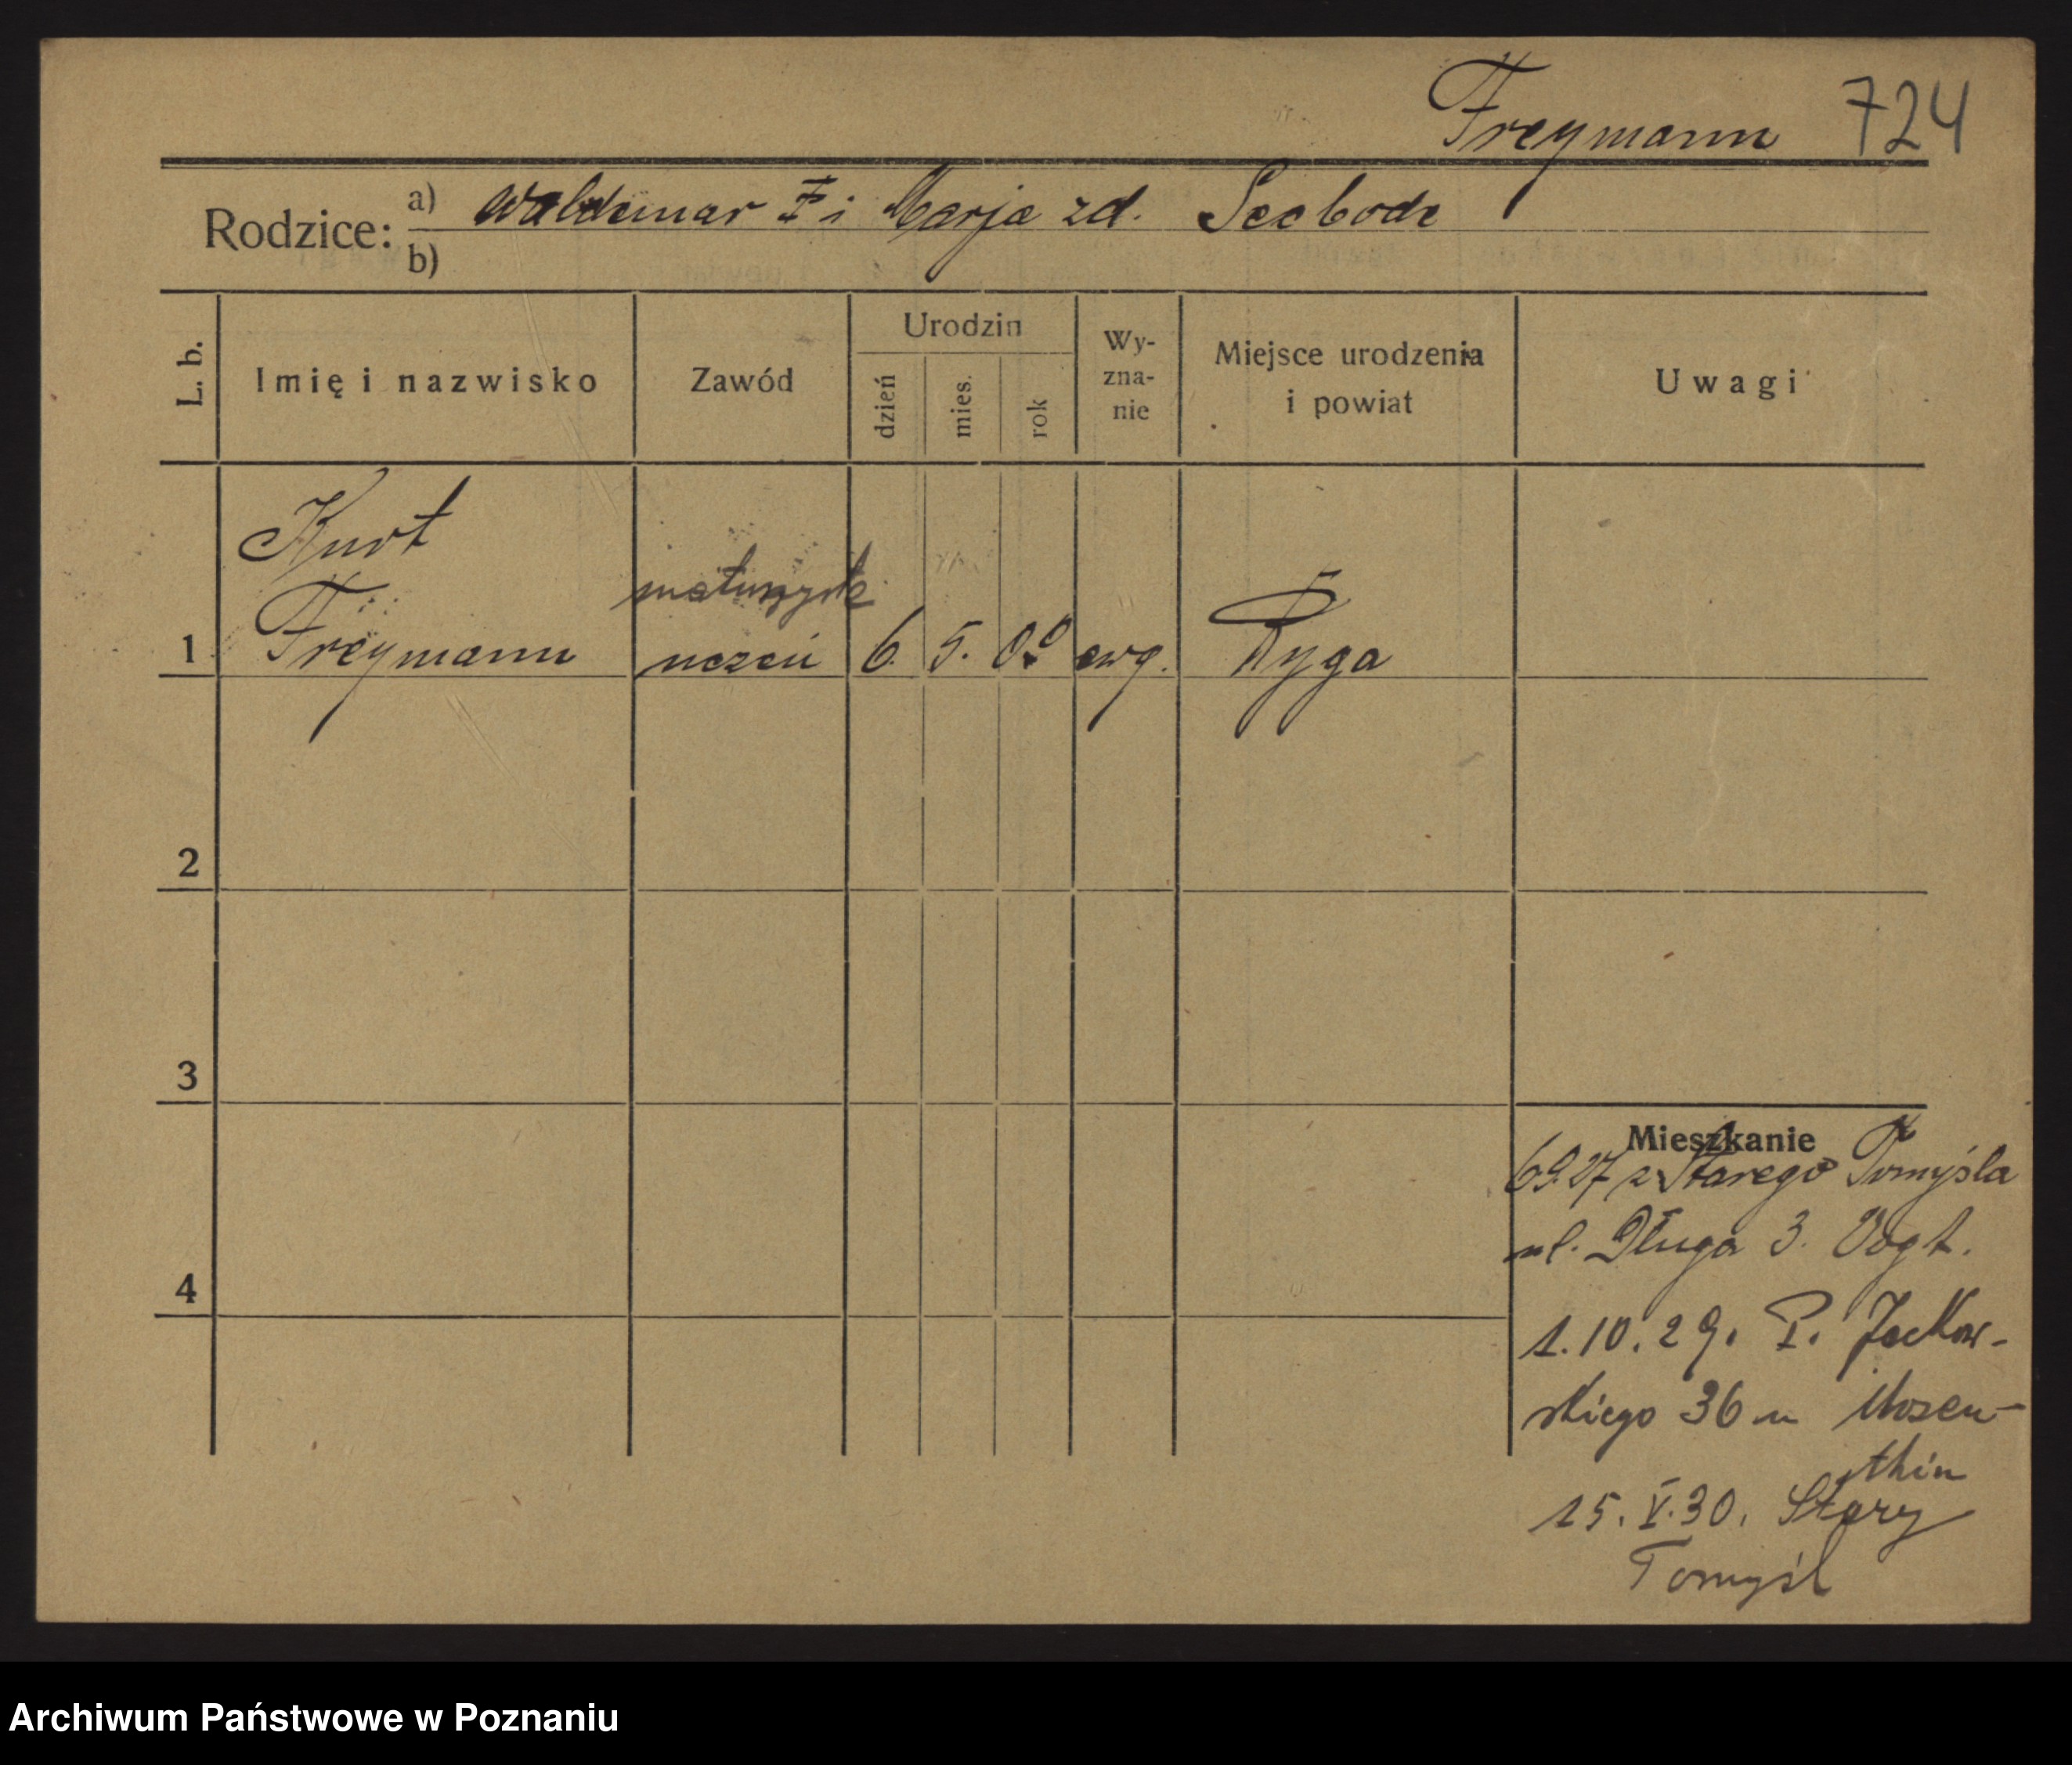 Freymann 724
Rodzice: a) Waldemar F i Marja zd. Seebode
b)
L. b.
Imię i nazwisko
Zawód
Urodzin
dzień
mies.
rok
Wy-
zna-
nie
Miejsce urodzenia
i powiat
Uwagi
Kurt
maturzysta
1 Freymann uczeń 6. 5. 09 ewg. Ryga
2
3
4
Mieszkanie
6.9.27 z Starego Tomyśla
ul. Długa 3. Vogt.
1.10.29. P. Jackow-
skiego 36 u Mosen-
thin
15.V.30. Stary
Tomyśl
Archiwum Państwowe w Poznaniu